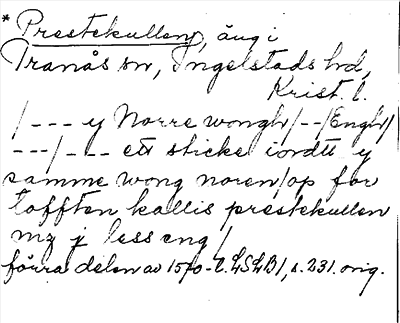 * Prestekullen, äng i
Tranås sn, Ingelstads hd,
Krist. l.
/--- y Norre wongh/--/Engh/
---/--- ett sticke iordtt y
samme wong noren/op for
tofften kallis prestekullen
mz j less eng /
förra delen av 1570-t. LSLB/, s. 231. orig.